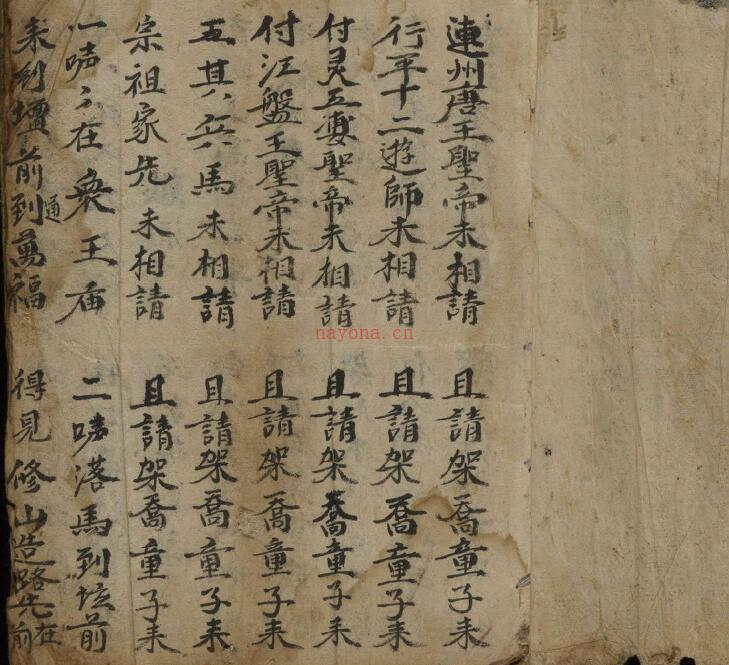 連州唐王聖帝未相請 且請架喬童子来
行平十二遊師未相請 且請架喬童子来
付灵五婆聖帝未相請 且請架喬童子来
付江盤王聖帝未相請 且請架喬童子来
五其兵馬未相請 且請架喬童子来
宗祖家先未相請 且請架喬童子来
一声在衆王庙 二声落馬到坛前
来到壇前到通萬福 得見修山造路先在前
nayona.cn